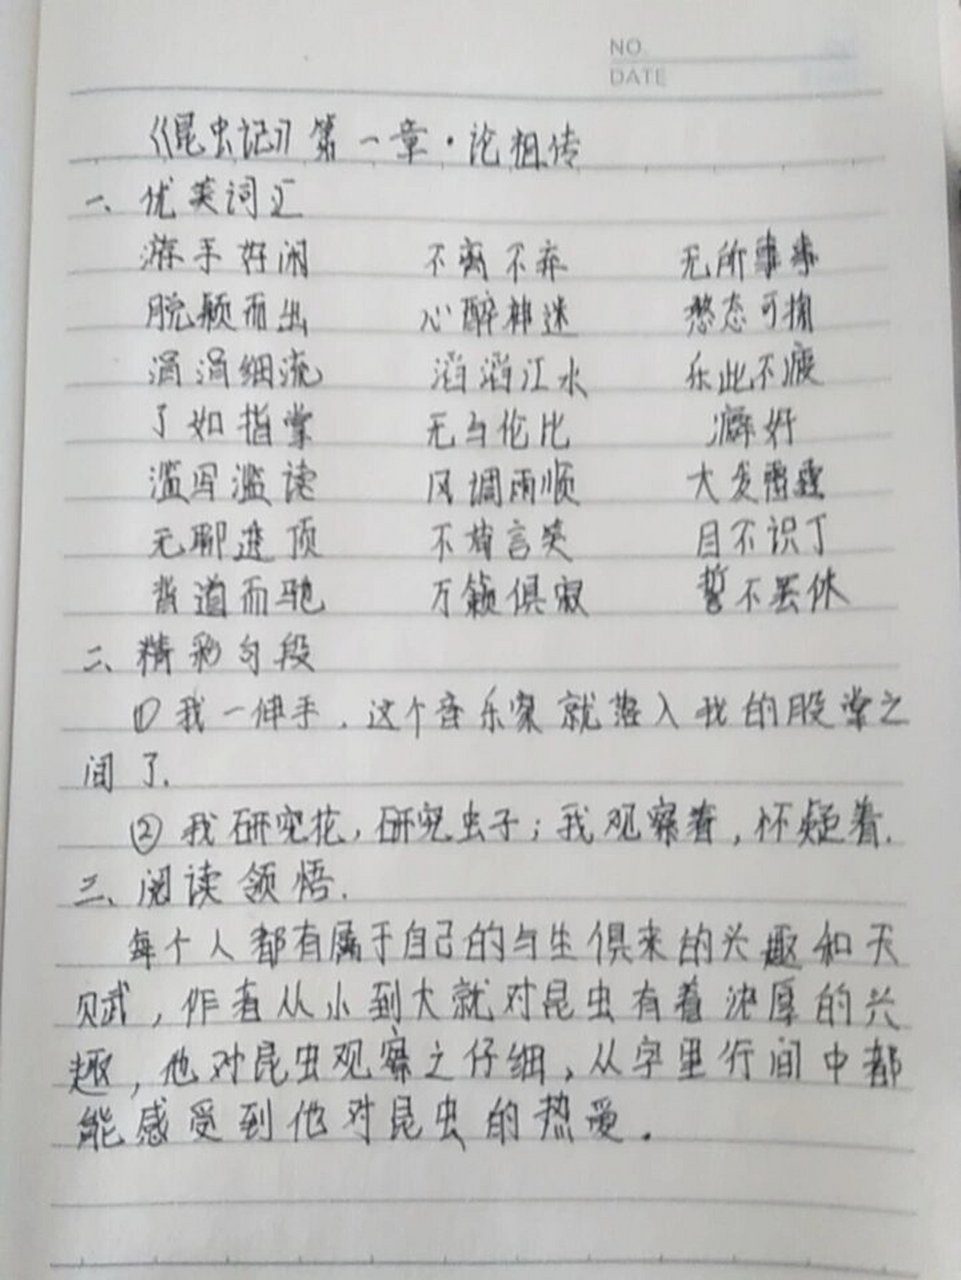 NO.
DATE
《昆虫记》第一章·论祖传
一、优美词汇
游手好闲 不离不弃 无所事事
脱颖而出 心醉神迷 憨态可掬
涓涓细流 滔滔江水 乐此不疲
了如指掌 无与伦比 癖好
滥写滥读 风调雨顺 大发雷霆
无聊透顶 不苟言笑 目不识丁
背道而驰 万籁俱寂 誓不罢休
二、精彩句段
①我一伸手,这个音乐家就落入我的股掌之
间了.
②我研究花,研究虫子;我观察着,怀疑着.
三、阅读领悟.
每个人都有属于自己的与生俱来的兴趣和天
赋,作者从小到大就对昆虫有着浓厚的兴
趣,他对昆虫观察之仔细,从字里行间中都
能感受到他对昆虫的热爱.